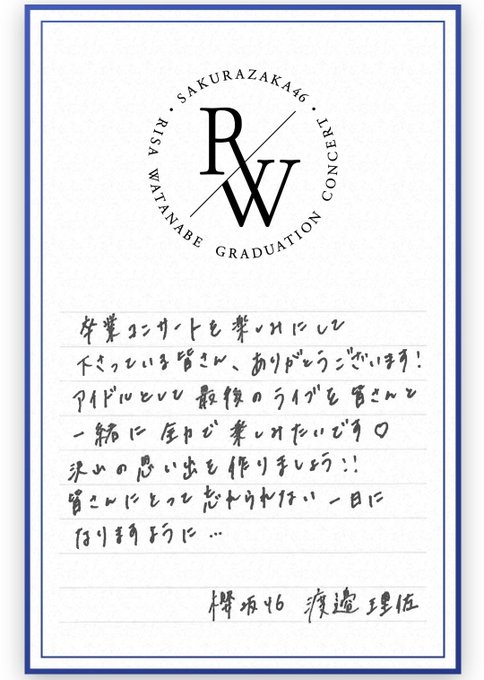 SAKURAZAKA46・
RISA WATANABE GRADUATION CONCERT・
RW
卒業コンサートを楽しみにして
下さっている皆さん、ありがとうございます!
アイドルとして最後のライブを皆さんと
一緒に全力で楽しみたいです♡
沢山の思い出を作りましょう!!
皆さんにとって忘れられない一日に
なりますように…
櫻坂46 渡邉理佐